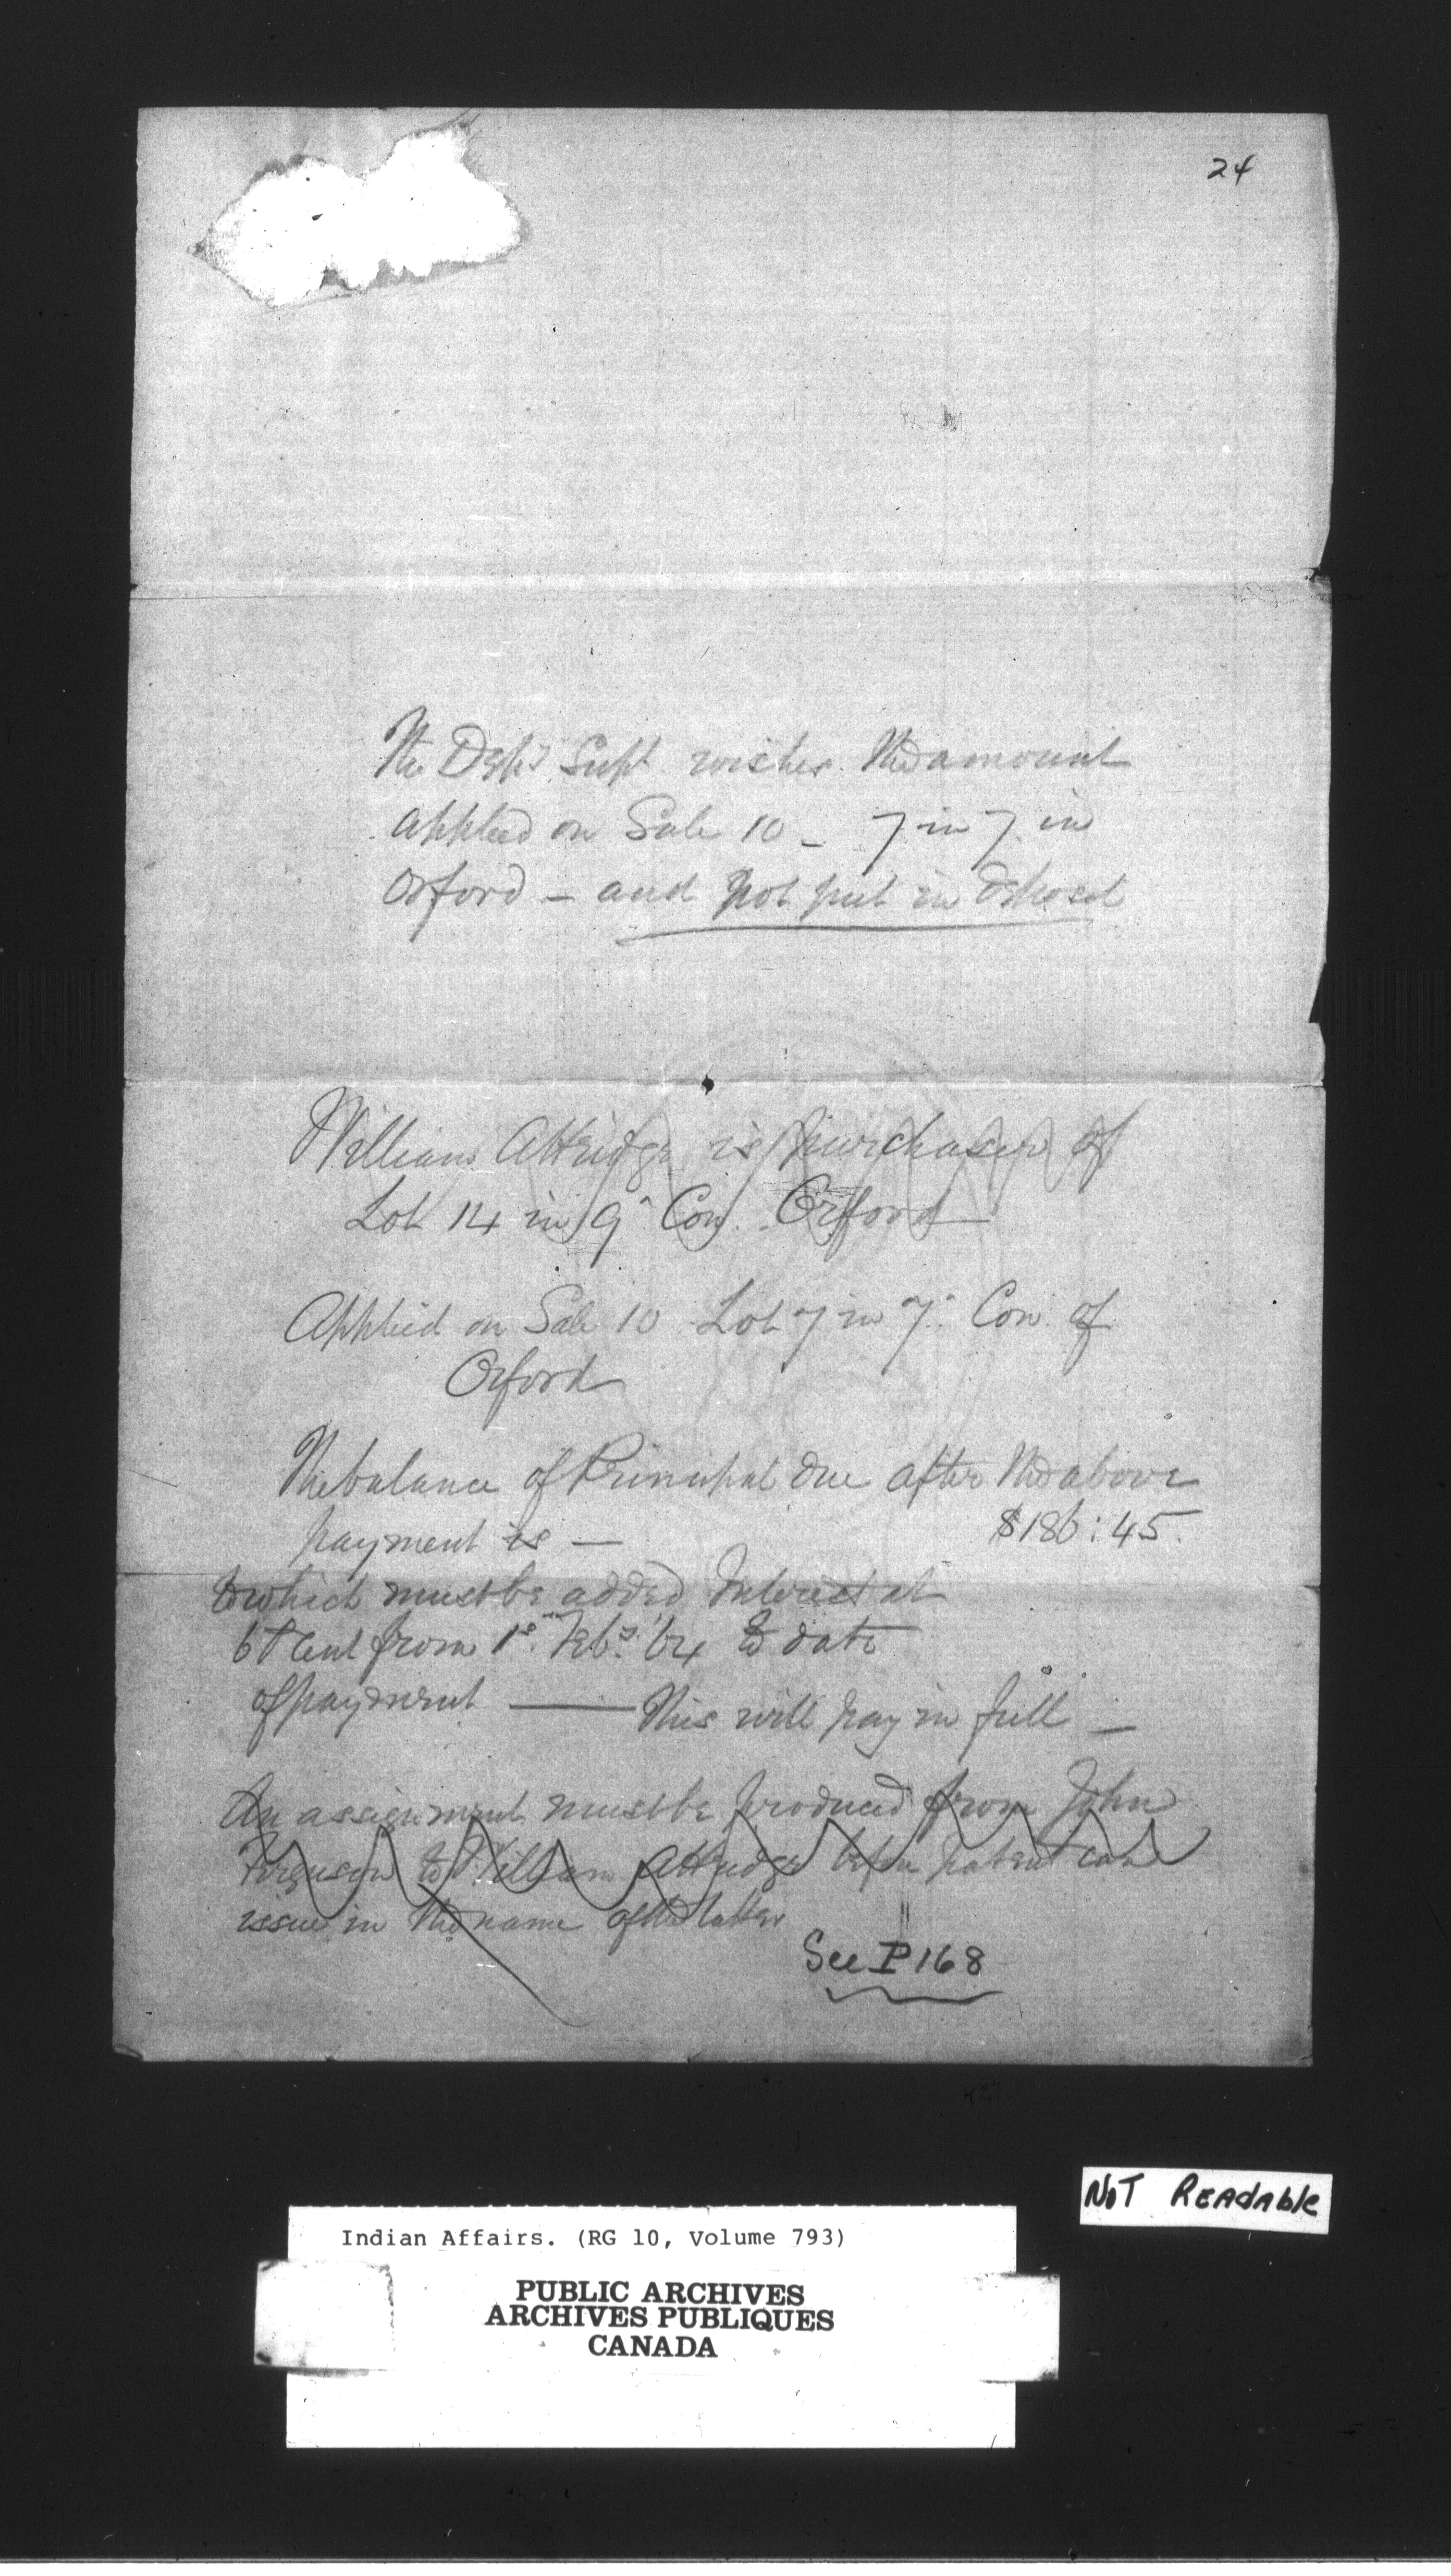 24
The Depy Supt. wishes the amount
applied on Sale 10 - 7 in 7 in
Orford - and not put in Deposit
William Attridge is purchaser of
Lot 14 in 9" Con. Orford
Applied on Sale 10 Lot 7 in 7" Con. of
Orford
The balance of Principal due after the above
payment is — $186:45.
to which must be added Interest at
6 P Cent from 1st Feby. '64 to date
of payment — This will pay in full —
An assignment must be produced from John
Ferguson to William Attridge before patent can
issue in the name of the latter
See P 168
NOT READABLE
Indian Affairs. (RG 10, Volume 793)
PUBLIC ARCHIVES
ARCHIVES PUBLIQUES
CANADA